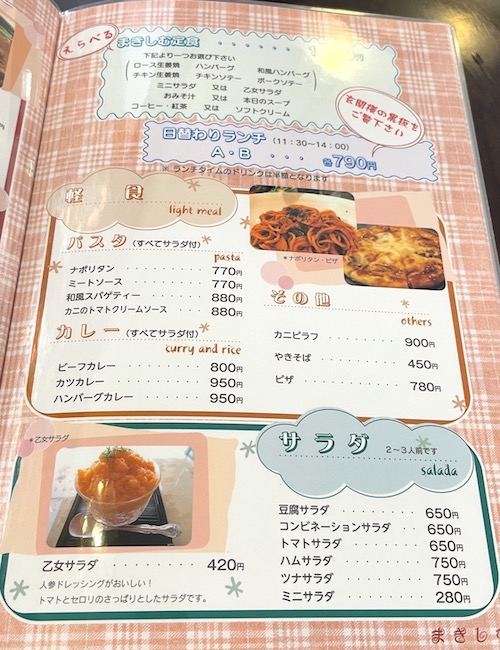 えらべる
まきしむ定食 ・・・・・・・・
下記より一つお選び下さい
ロース生姜焼 ハンバーグ 和風ハンバーグ
チキン生姜焼 チキンソテー ポークソテー
ミニサラダ 又は 乙女サラダ
おみそ汁 又は 本日のスープ
コーヒー・紅茶 又は ソフトクリーム
玄関横の黒板を
ご覧下さい
日替わりランチ (11：30～14：00)
A・B ・・・ 各790円
※ ランチタイムのドリンクは半額となります
軽食
light meal
パスタ(すべてサラダ付)
pasta
ナポリタン ・・・・・ 770円
ミートソース ・・・・ 770円
和風スパゲティー ・・ 880円
カニのトマトクリームソース 880円
カレー(すべてサラダ付)
curry and rice
ビーフカレー ・・・・・・・ 800円
カツカレー ・・・・・・・・ 950円
ハンバーグカレー ・・・・・ 950円
＊ナポリタン・ピザ
その他
others
カニピラフ ・・・・・・ 900円
やきそば ・・・・・・・ 450円
ピザ ・・・・・・・・・ 780円
＊乙女サラダ
乙女サラダ ・・・・・・・ 420円
人参ドレッシングがおいしい！
トマトとセロリのさっぱりとしたサラダです。
サラダ 2～3人前です
salada
豆腐サラダ ・・・・・・・ 650円
コンビネーションサラダ ・・ 650円
トマトサラダ ・・・・・・ 650円
ハムサラダ ・・・・・・・ 750円
ツナサラダ ・・・・・・・ 750円
ミニサラダ ・・・・・・・ 280円
まきし